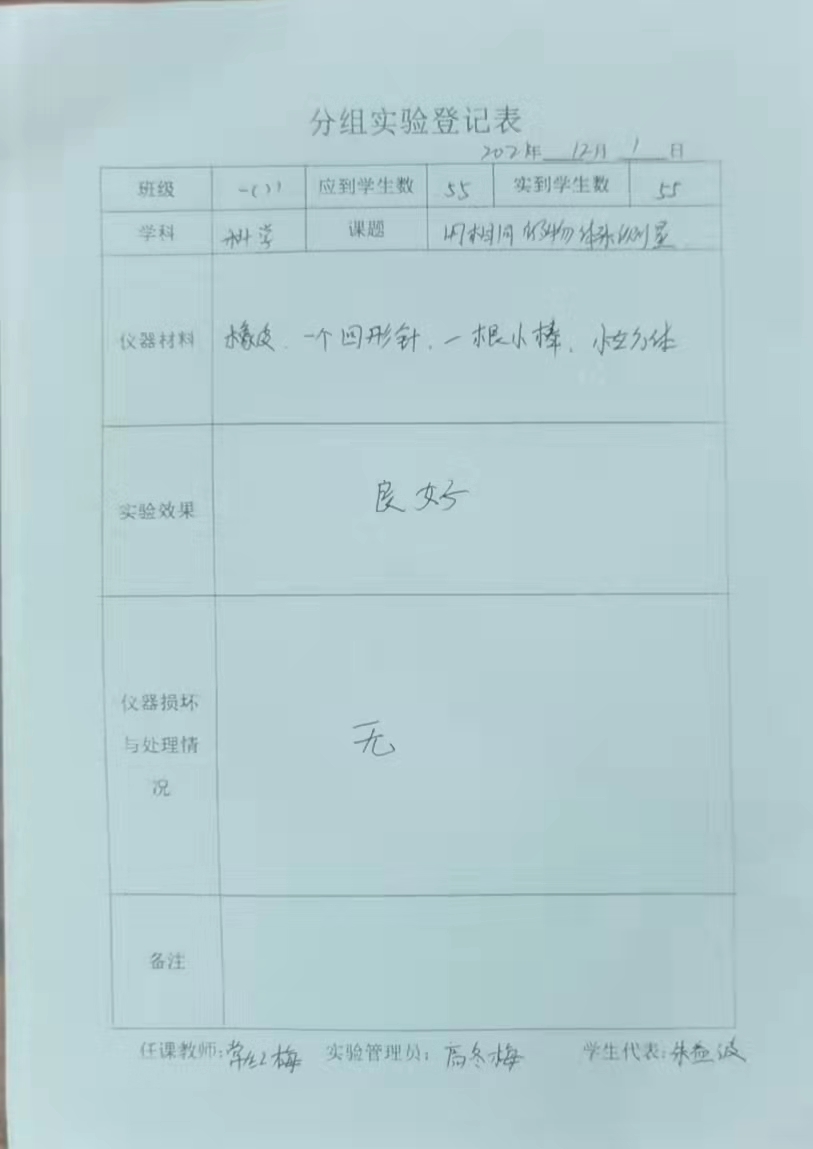 分组实验登记表
202 年 12月 1 日
班级 一( ) 应到学生数 55 实到学生数 55
学科 科学 课题 用相同的物体来测量
仪器材料 橡皮、一个回形针、一根小棒、小立方体
实验效果 良好
仪器损坏
与处理情
况
无
备注
任课教师:常红梅 实验管理员:高冬梅 学生代表:朱 波